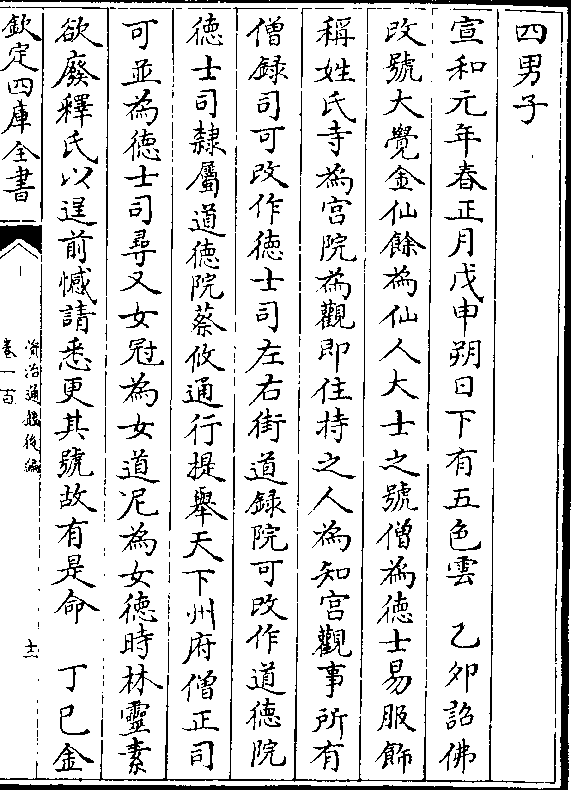 四男子
宣和元年春正月戊申朔日下有五色雲　乙卯詔佛
改號大覺金仙餘為仙人大士之號僧為徳士易服飾
稱姓氏寺為宫院為觀即住持之人為知宫觀事所有
僧録司可改作徳士司左右街道録院可改作道徳院
徳士司隸屬道徳院蔡攸通行提舉天下州府僧正司
可並為徳士司尋又女冠為女道尼為女徳時林靈素
欲廢釋氏以逞前憾請悉更其號故有是命　丁巳金
欽定四庫全書
資治通鑑後編
卷一百
十二